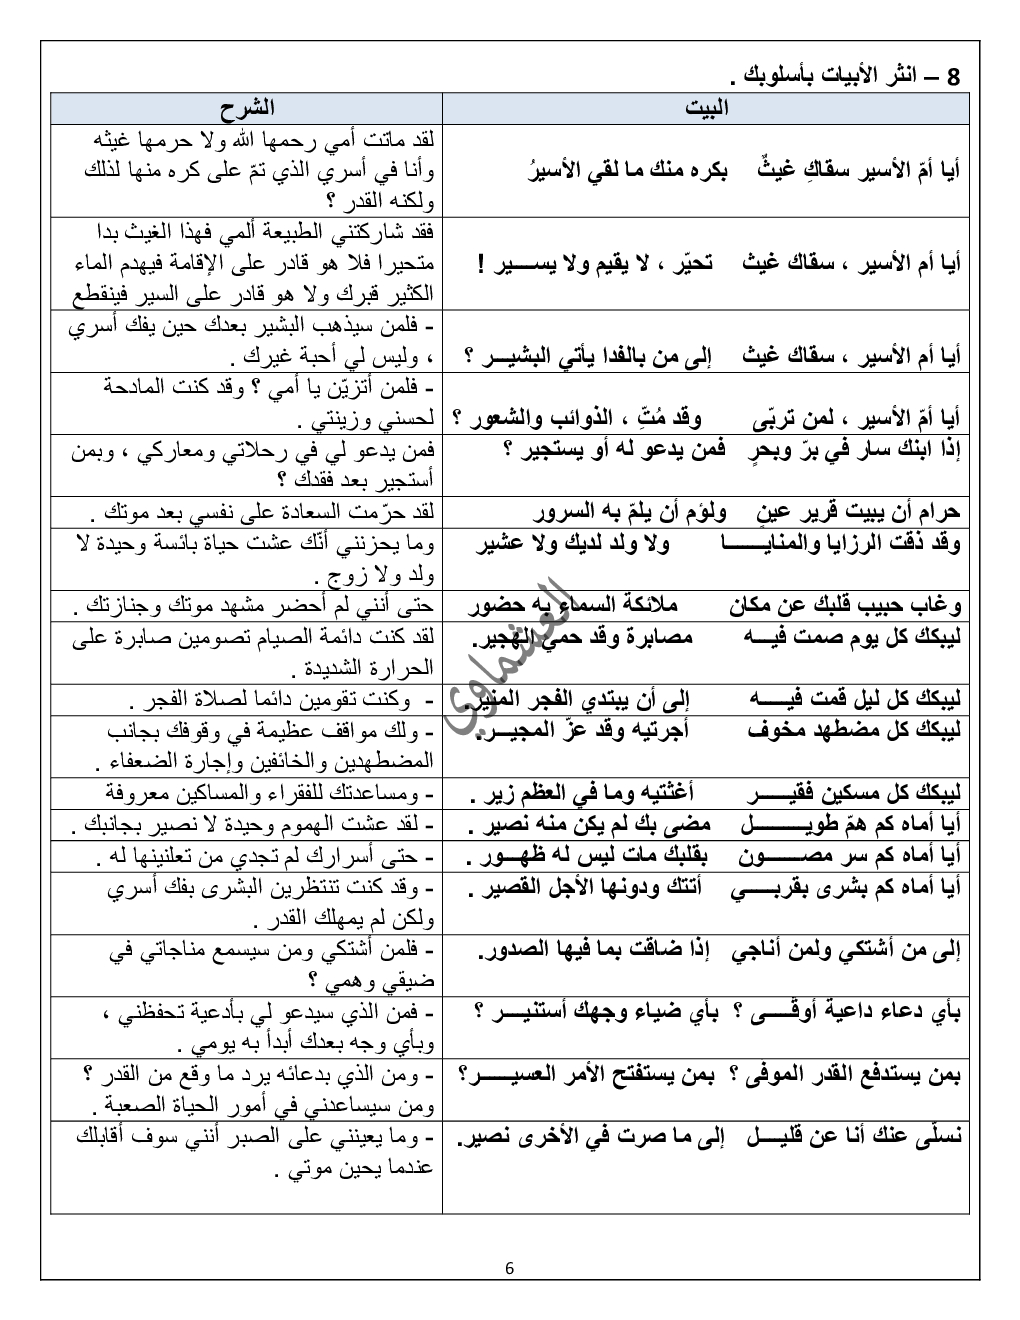 8 – انثر الأبيات بأسلوبك .
البيت	الشرح
أيا أمّ الأسير سقاكِ غيثٌ بكره منك ما لقي الأسيرُ
لقد ماتت أمي رحمها الله ولا حرمها غيثه
وأنا في أسري الذي تمّ على كره منها لذلك
ولكنه القدر ؟
أيا أم الأسير ، سقاك غيث تحيّر ، لا يقيم ولا يســــير !
فقد شاركتني الطبيعة ألمي فهذا الغيث بدا
متحيرا فلا هو قادر على الإقامة فيهدم الماء
الكثير قبرك ولا هو قادر على السير فينقطع
أيا أم الأسير ، سقاك غيث إلى من بالفدا يأتي البشيـــر ؟
- فلمن سيذهب البشير بعدك حين يفك أسري
، وليس لي أحبة غيرك .
أيا أمّ الأسير ، لمن تربّى وقد مُتِّ ، الذوائب والشعور ؟
- فلمن أتزيّن يا أمي ؟ وقد كنت المادحة
لحسني وزينتي .
إذا ابنك سار في برّ وبحرٍ فمن يدعو له أو يستجير ؟
فمن يدعو لي في رحلاتي ومعاركي ، وبمن
أستجير بعد فقدك ؟
حرام أن يبيت قرير عينٍ ولؤم أن يلمّ به السرور
لقد حرّمت السعادة على نفسي بعد موتك .
وقد ذقت الرزايا والمنايـــــــا ولا ولد لديك ولا عشير
وما يحزنني أنّك عشت حياة بائسة وحيدة لا
ولد ولا زوج .
وغاب حبيب قلبك عن مكان ملائكة السماء به حضور
حتى أنني لم أحضر مشهد موتك وجنازتك .
ليبكك كل يوم صمت فيـــه مصابرة وقد حمي الهجير.
لقد كنت دائمة الصيام تصومين صابرة على
الحرارة الشديدة .
ليبكك كل ليل قمت فيـــــه إلى أن يبتدي الفجر المنير.
- وكنت تقومين دائما لصلاة الفجر .
ليبكك كل مضطهد مخوف أجرتيه وقد عزّ المجيـــر.
- ولك مواقف عظيمة في وقوفك بجانب
المضطهدين والخائفين وإجارة الضعفاء .
ليبكك كل مسكين فقيـــــر أغثتيه وما في العظم زير .
- ومساعدتك للفقراء والمساكين معروفة
أيا أماه كم همّ طويــــــــل مضى بك لم يكن منه نصير .
- لقد عشت الهموم وحيدة لا نصير بجانبك .
أيا أماه كم سر مصـــــــون بقلبك مات ليس له ظهـــور .
- حتى أسرارك لم تجدي من تعلنينها له .
أيا أماه كم بشرى بقربـــــي أتتك ودونها الأجل القصير .
- وقد كنت تنتظرين البشرى بفك أسري
ولكن لم يمهلك القدر .
إلى من أشتكي ولمن أناجي إذا ضاقت بما فيها الصدور.
- فلمن أشتكي ومن سيسمع مناجاتي في
ضيقي وهمي ؟
بأي دعاء داعية أوقّـــــى ؟ بأي ضياء وجهك أستنيـــر ؟
- فمن الذي سيدعو لي بأدعية تحفظني ،
وبأي وجه بعدك أبدأ به يومي .
بمن يستدفع القدر الموفى ؟ بمن يستفتح الأمر العسيـــــر؟
- ومن الذي بدعائه يرد ما وقع من القدر ؟
ومن سيساعدني في أمور الحياة الصعبة .
نسلّى عنك أنا عن قليـــل إلى ما صرت في الأخرى نصير.
- وما يعينني على الصبر أنني سوف أقابلك
عندما يحين موتي .
العشماوي
6